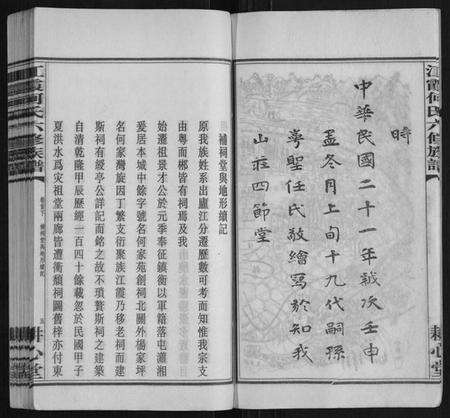 時
中華民國二十一年歲次壬申
孟冬月上旬十九代嗣孫
粵聖任氏敬繪寫於知我
山莊四節堂
江霞何氏六修族譜
耕心堂
補祠堂與地形續記
原我族姓系出廬江分遷歷數可考而知惟我宗支
由粵而郴皆有祠焉及我
始遷祖泉才公於元季奉征鎮衡以軍籍落屯瀟湘
爰居本城中餘字號名何家苑創祠北關外楊家坪
名何家灣族因丁繁支衍聚族江霞乃移老祠而建
斯祠有緩亭公詳記而銘之故不瑣贅斯祠之建築
自清乾隆甲辰歷經一百四十餘載忽於民國甲子
夏洪水為灾祖堂兩廊皆遭衝頹祠圖著梓亦付東
江霞何氏六修族譜
耕心堂